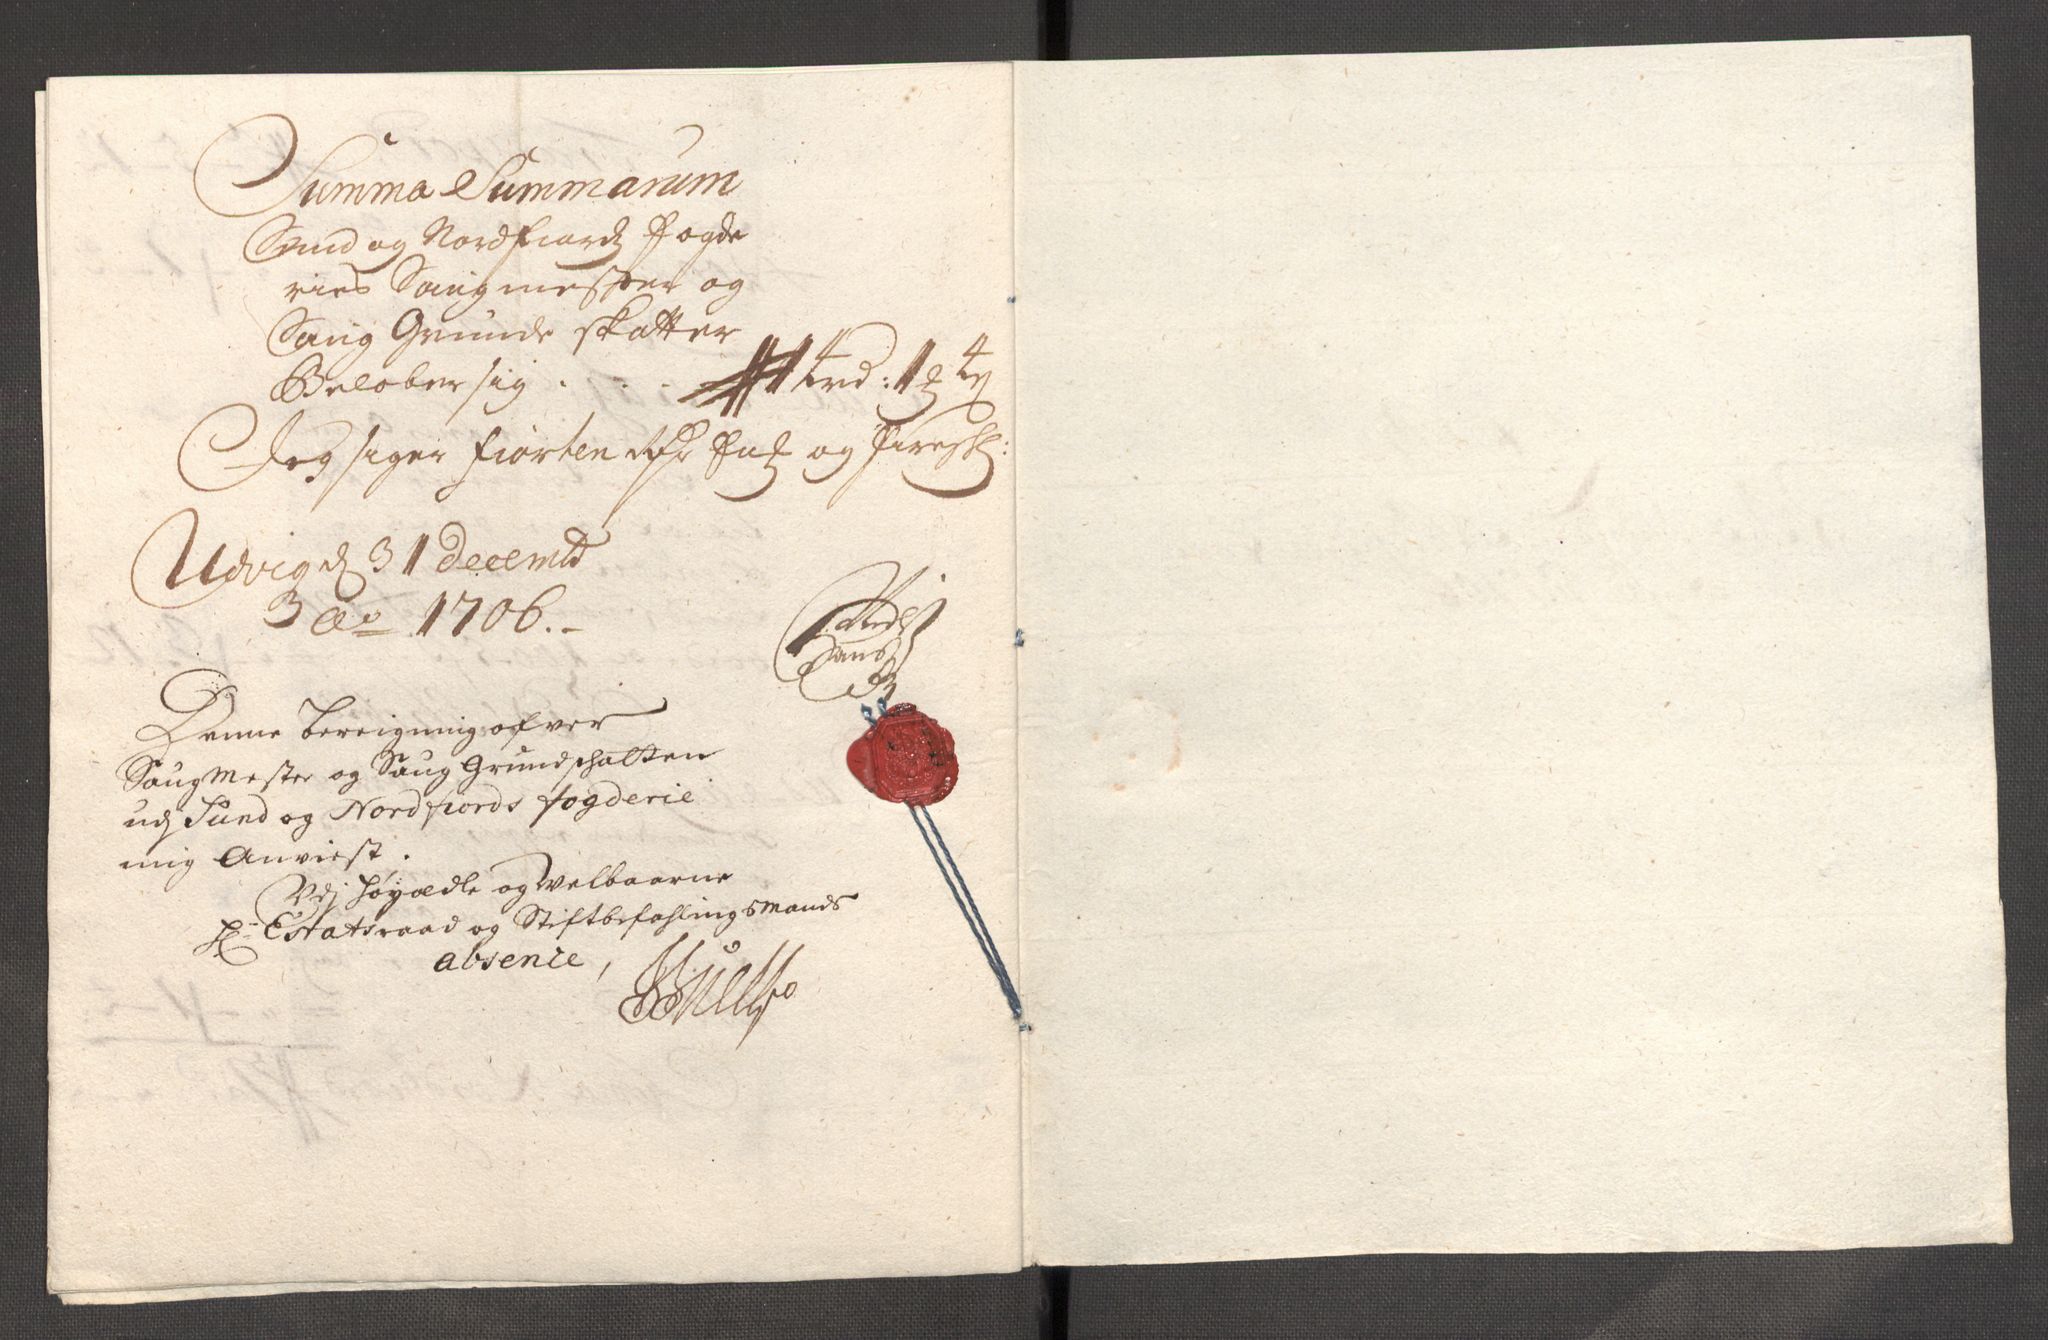 Summa Summarum
Sund og Nordfiords fogde
ries Saugmester og
Saug Grunde skatter
Beløber sig . . . 14 rd: 1
Jeg siger fiorten og fire sk:
Udvig d 31 decemb
Ao 1706.
Denne bereigning ofver
Saugmester og Saug Grundschatten
udj Sund og Nordfiords fogderie
mig Anviest.
Udj høyædle og welbaarne
Hr Estatsraad og Stiftbefahlingsmands
absence,